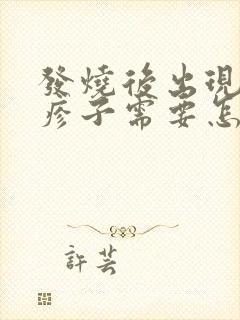 發燒後出現
疹子需要怎
許芸